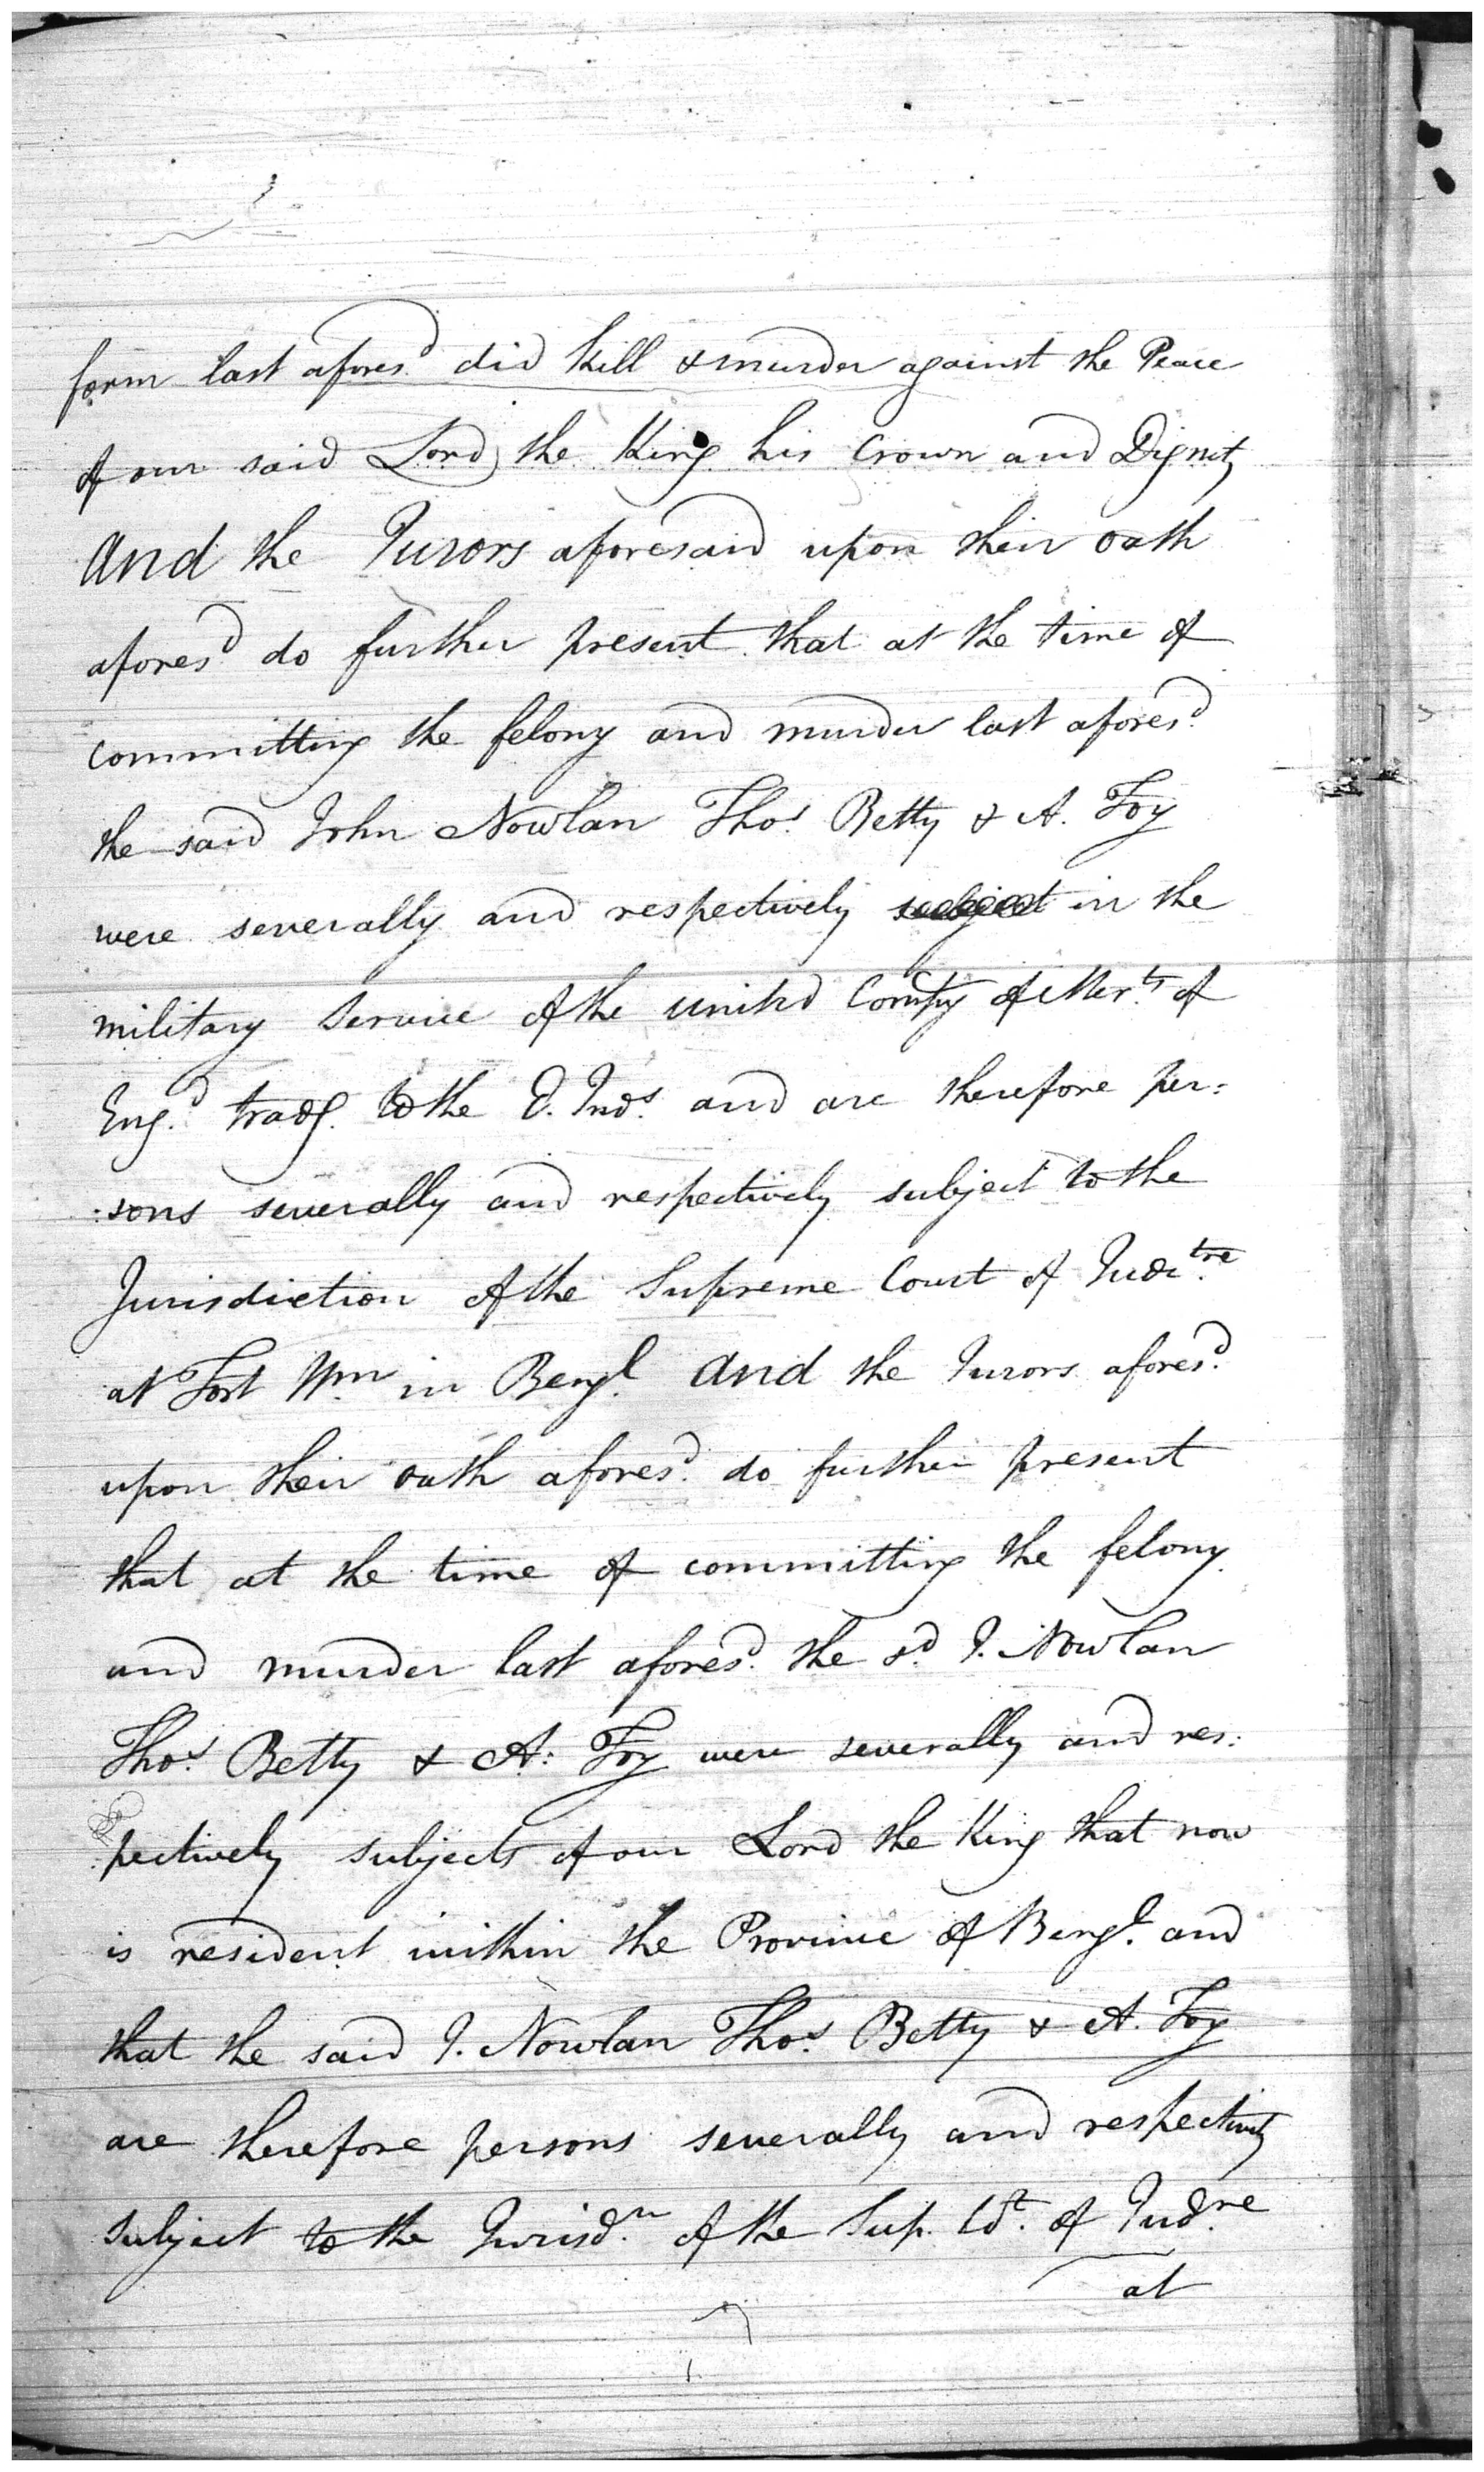 form last afores.d did kill & murder against the Peace
of our said Lord the King his Crown and Dignity
And the Jurors aforesaid upon their oath
afores.d do further present that at the time of
committing the felony and murder last afores.d
the said John Nowlan Tho.s Betty & A. Foy
were severally and respectively subject in the
military Service of the United Comp.y of Mer.ts of
Eng.d trad.g to the E. Ind.s and are therefore per:
:sons severally and respectively subject to the
Jurisdiction of the Supreme Court of Judic.tre
at Fort W.m in Beng.l And the Jurors afores.d
upon their oath afores.d do further present
that at the time of committing the felony
and murder last afores.d the s.d J. Nowlan
Tho.s Betty & A: Foy were severally and res:
:pectively subjects of our Lord the King that now
is resident within the Province of Beng.l and
that the said J. Nowlan Tho.s Betty & A. Foy
are therefore persons severally and respectively
subject to the Jurisd.n of the Sup. C.t of Jud.re
at